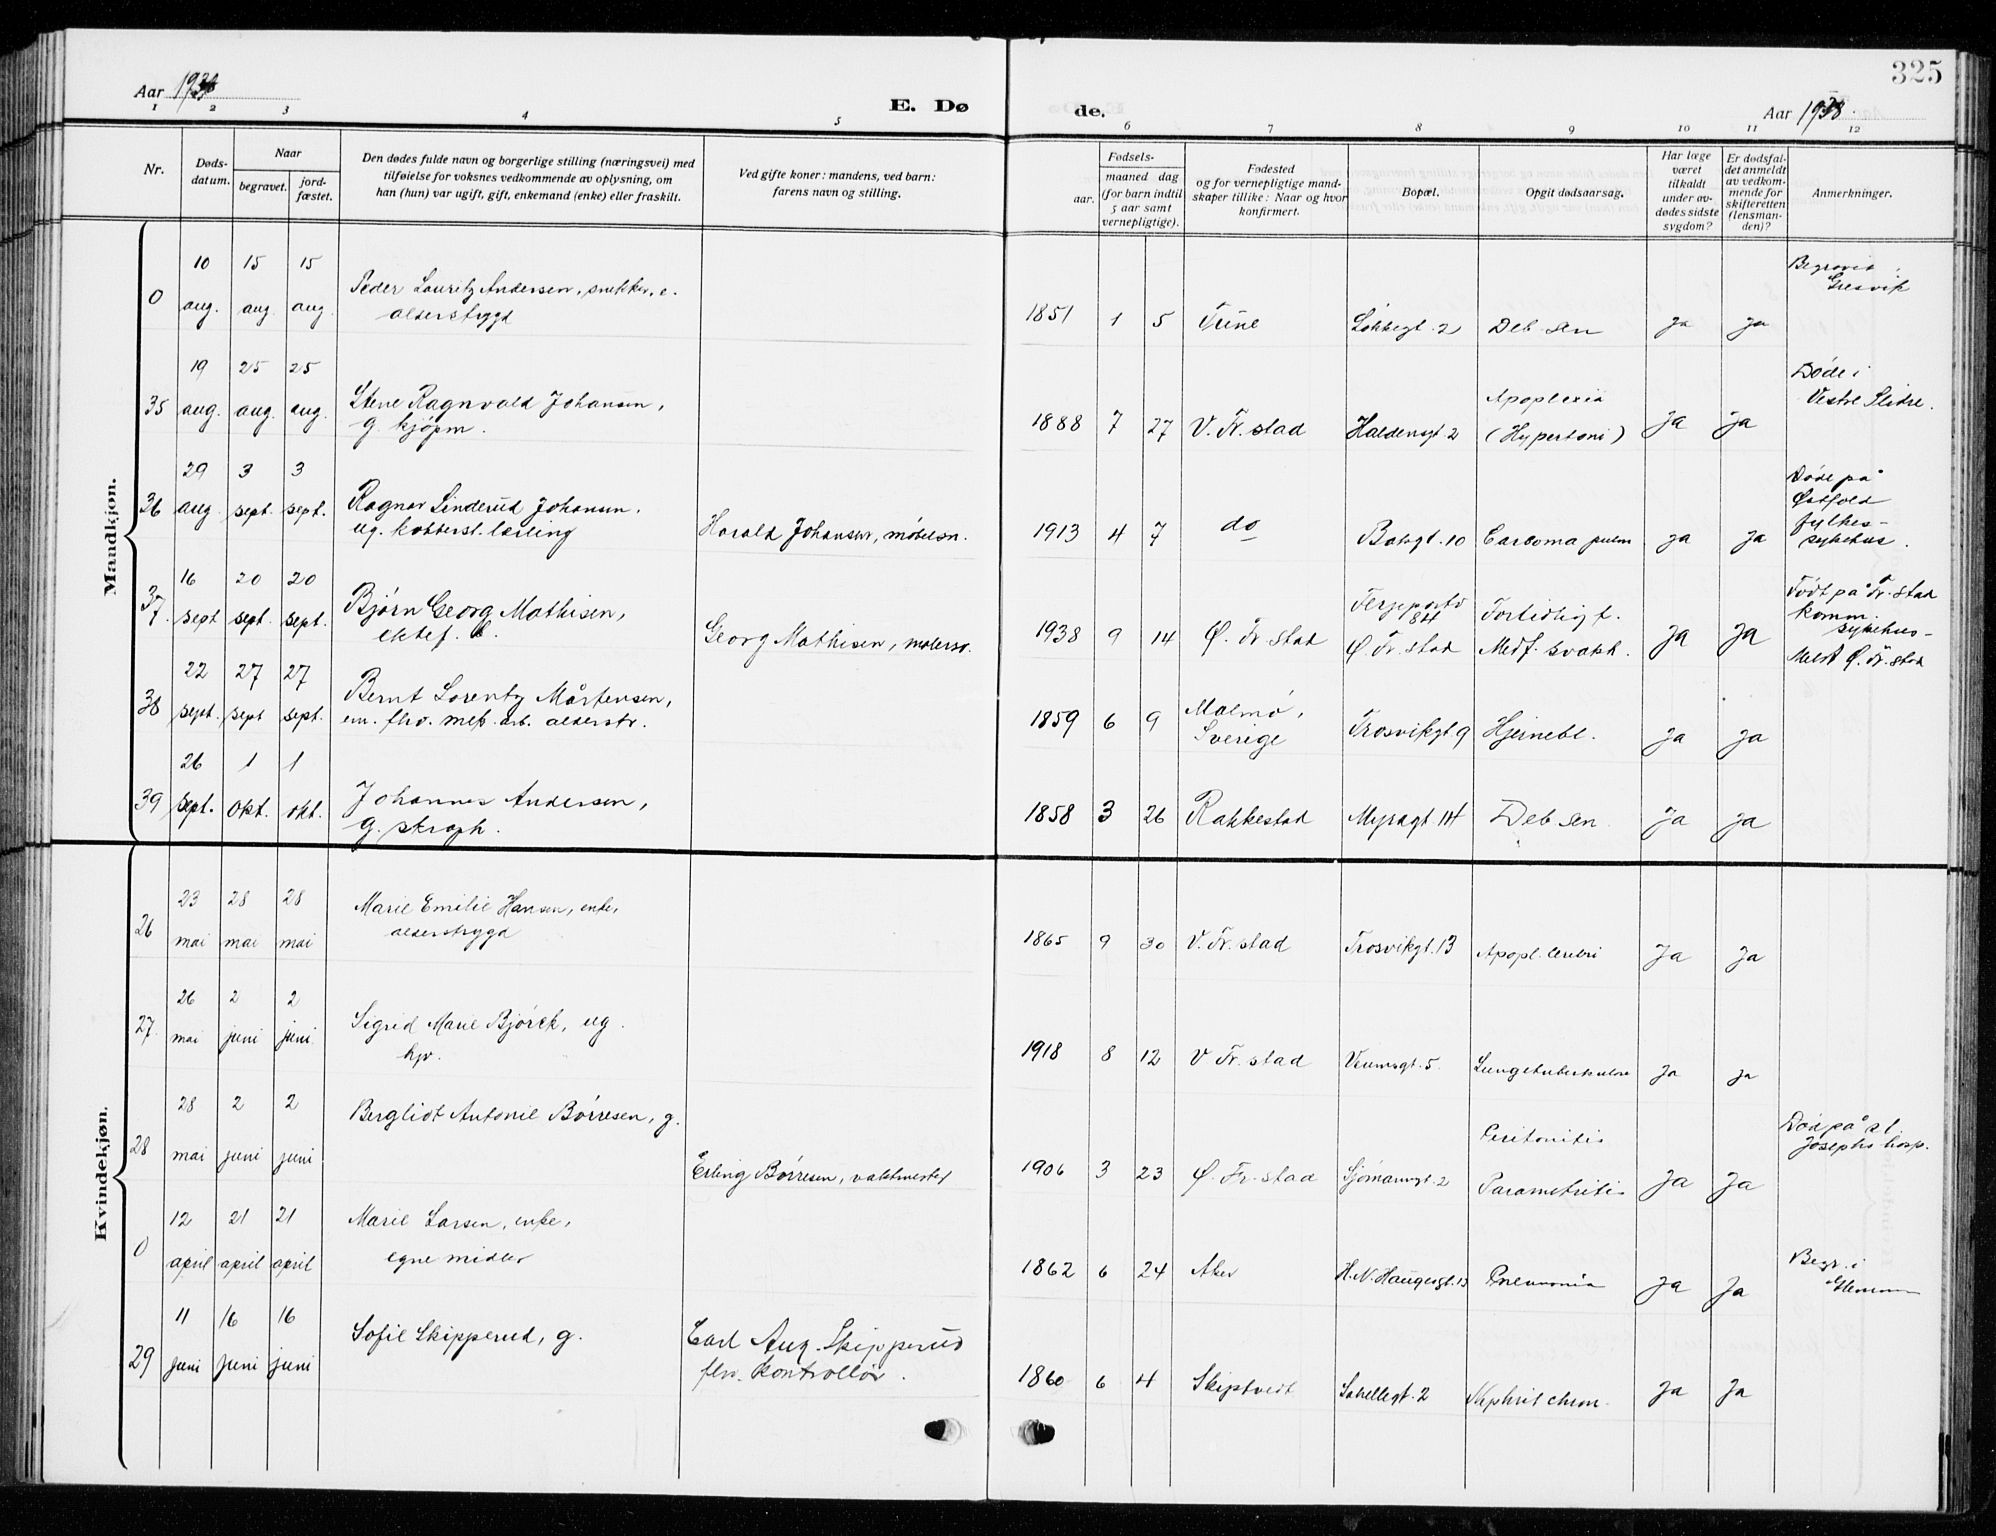 325
Aar 1938
E. Dø
de.
Aar 1938.
1 2 3 4 5 6 7 8 9 10 11 12
Nr.
Døds-
datum.
Naar
begravet.
jord-
fæstet.
Den dødes fulde navn og borgerlige stilling (næringsvei) med
tilføielse for voksnes vedkommende av oplysning, om
han (hun) var ugift, gift, enkemand (enke) eller fraskilt.
Ved gifte koner: mandens, ved barn:
farens navn og stilling.
Fødsels-
aar.
maaned dag
(for barn indtil
5 aar samt
vernepligtige).
Fødested
og for vernepligtige mand-
skaper tillike: Naar og hvor
konfirmert.
Bopæl.
Opgit dødsaarsag.
Har læge
været
tilkaldt
under av-
dødes sidste
sygdom?
Er dødsfal-
det anmeldt
av vedkom-
mende for
skifteretten
(lensman-
den)?
Anmerkninger.
Mandkjøn.
0 10 aug. 15 aug. 15 aug.
Peder Lauritz Andersen, snekker, e.
alderstrygd
1851 1 5 Tune Løkkegt. 2 Deb. sen ja ja
Begravet i
Gresvik
35 19 aug. 25 aug. 25 aug.
Stene Ragnvald Johansen,
g. kjøpm.
1888 7 27 V. Fr. stad Haldensgt. 2
Apoplexia
(Hypertoni) ja ja
Døde i
Vestre Slidre.
36 29 aug 3 sept. 3 sept.
Ragnar Linderud Johansen,
ug. kobberst. lærling
Harald Johansen, møbelsn.
1913 4 7 do 10 pulm ja ja
Døde på
Østfold
fylkes-
sykehus.
37. 16 sept 20 sept. 20 sept.
Bjørn Georg Mathisen,
ektef. b.
Georg Mathisen, malersv.
1938 9 14 Ø. Fr. stad
84
Ø. Fr. stad
Fortidligt.
Medf. svakh. ja ja
Født på Fr. stad
komm.
sykehus-
Meldt Ø. Fr. stad
38 22 sept. 27 sept 27 sept.
Bernt Lorentz Mårtensen,
em. fhv. mek. arb. alderstr.
1859 6 9 Malmø,
Sverige
Trosvikgt. 9 Hjernebl. ja ja
39 26 sept. 1 okt. 1 okt.
Johannes Andersen,
g.
1858 3 26 Rakkestad Myragt. 14 Deb sen. ja ja
Kvindekjøn.
26 23 mai 28 mai 28 mai
Marie Emilie Hansen, enke,
alderstrygd
1865 9 30 V. Fr. stad Trosvikgt. 13 Apopl. cerebri Ja Ja
27. 26 mai 2 juni 2 juni
Sigrid Marie Bjørck, ug.
hjv.
1918 8 12 V Fr. stad Veumsgt. 5. Lungetuberkulose Ja Ja
28 28 mai 2 juni 2 juni
Bergliot Antonie Børresen, g.
Erling Børresen, vaktmester
1906 3 23 Ø. Fr. stad Sjømannsgt. 2
Peritonitis
Parametritis Ja Ja
Død på St.
Josephs hosp.
0 12 april 21 april 21 april
Marie Larsen, enke,
egne midler
1862 6 24 Aker H. N. Haugesgt. 13 Pneumonia Ja Ja
Begr. i
Glemmen
29 11 juni 16 juni 16 juni
Sofie Skipperud, g.
Carl Aug. Skipperud
fhv. kontrollør.
1860 6 4 Skiptvedt 2 Nephrit chron. Ja Ja